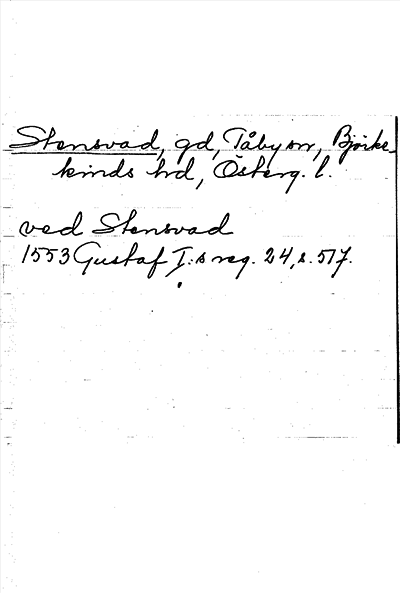 Stensvad, gd, Tåby sn, Björke-
kinds hd, Österg. l.
ved Stensvad
1553 Gustaf I:s reg. 24, s. 517.